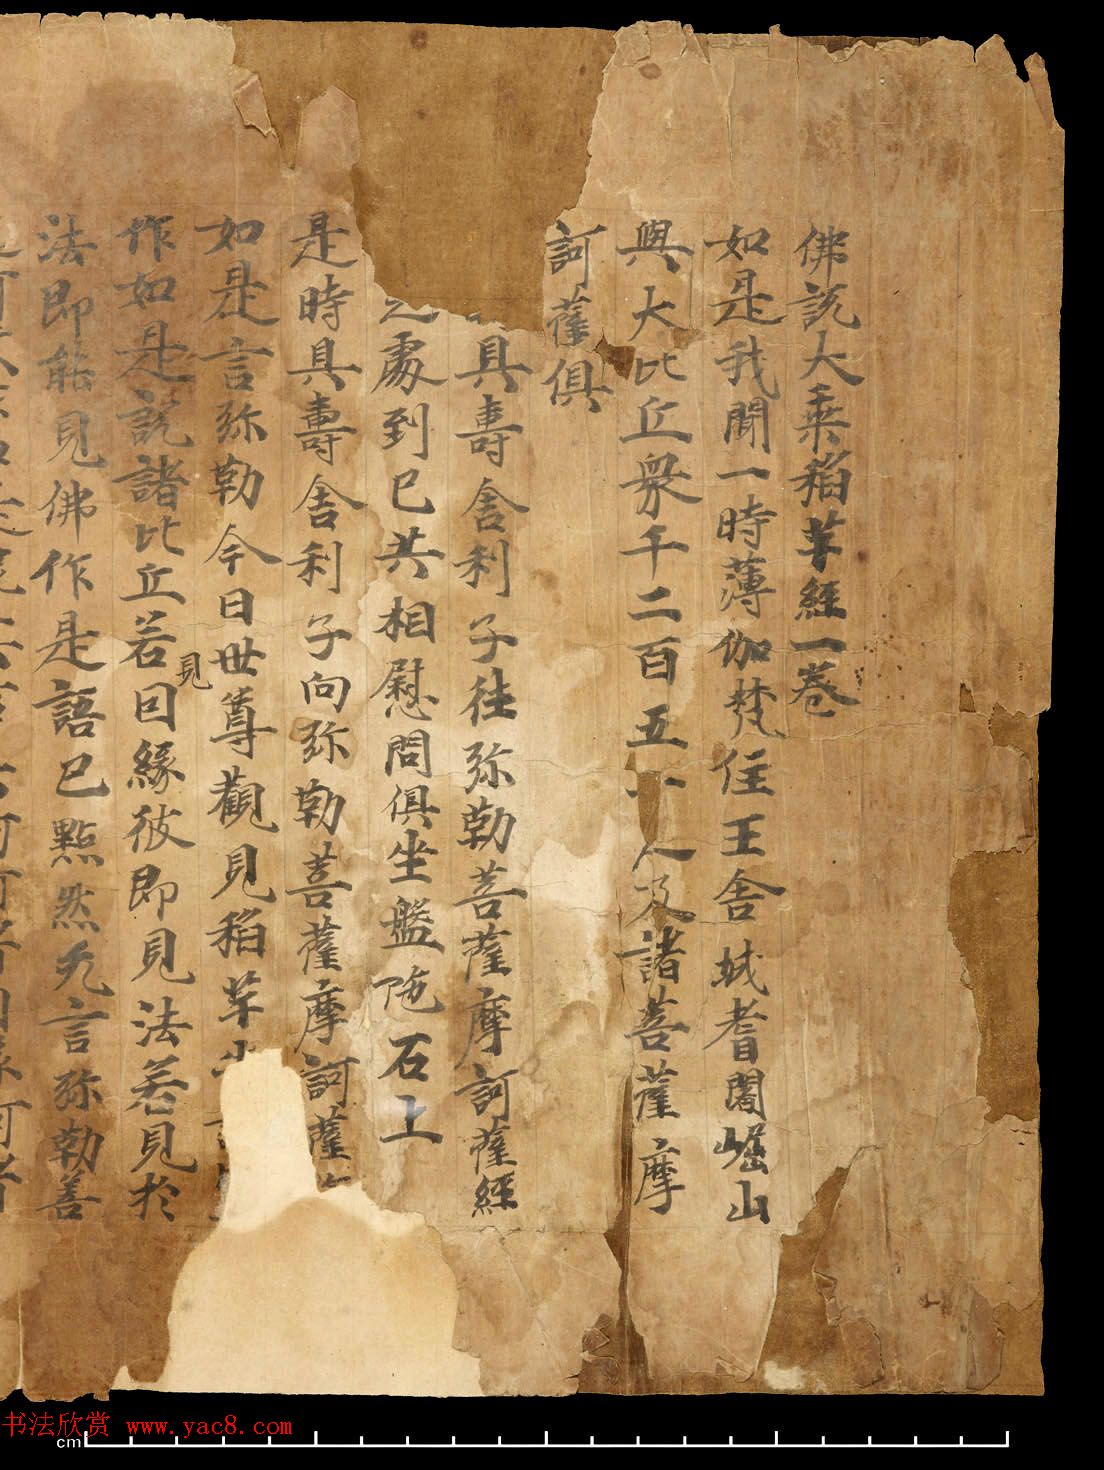 佛說大乘稻芉經一卷
如是我聞一時薄伽梵住王舍城耆闍崛山
與大比丘眾千二百五十人及諸菩薩摩
訶薩俱
具壽舍利子往弥勒菩薩摩訶薩經
之處到已共相慰問俱坐盤陁石上
是時具壽舍利子向弥勒菩薩摩訶薩
如是言弥勒今日世尊觀見稻芉
作如是說諸比丘若見因緣彼即見法若見於
法即能見佛作是語已默然无言弥勒善
書法欣赏 www.yac8.com
cm